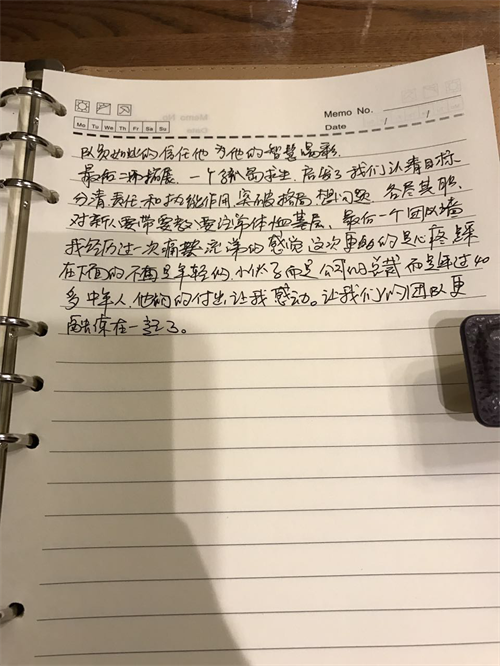 Memo No.
Mo Tu We Th Fr Sa Su
Date / /
队员如此的信任他 为他的智慧喝彩.
最后二环拓展. 一个孤岛求生 启发了我们认清目标
分清责任和执能作用 突破格局 想问题 各尽其职.
对新人要带要教 要 体恤基层. 最后一个团队墙
我经历过一次痛 的感觉 这次更多的是心疼 踩
在下面的不再是年轻的小伙了而是公司的总裁 而是年过40
多中年人. 他们的付出让我感动. 让我们的团队更
在一起了。